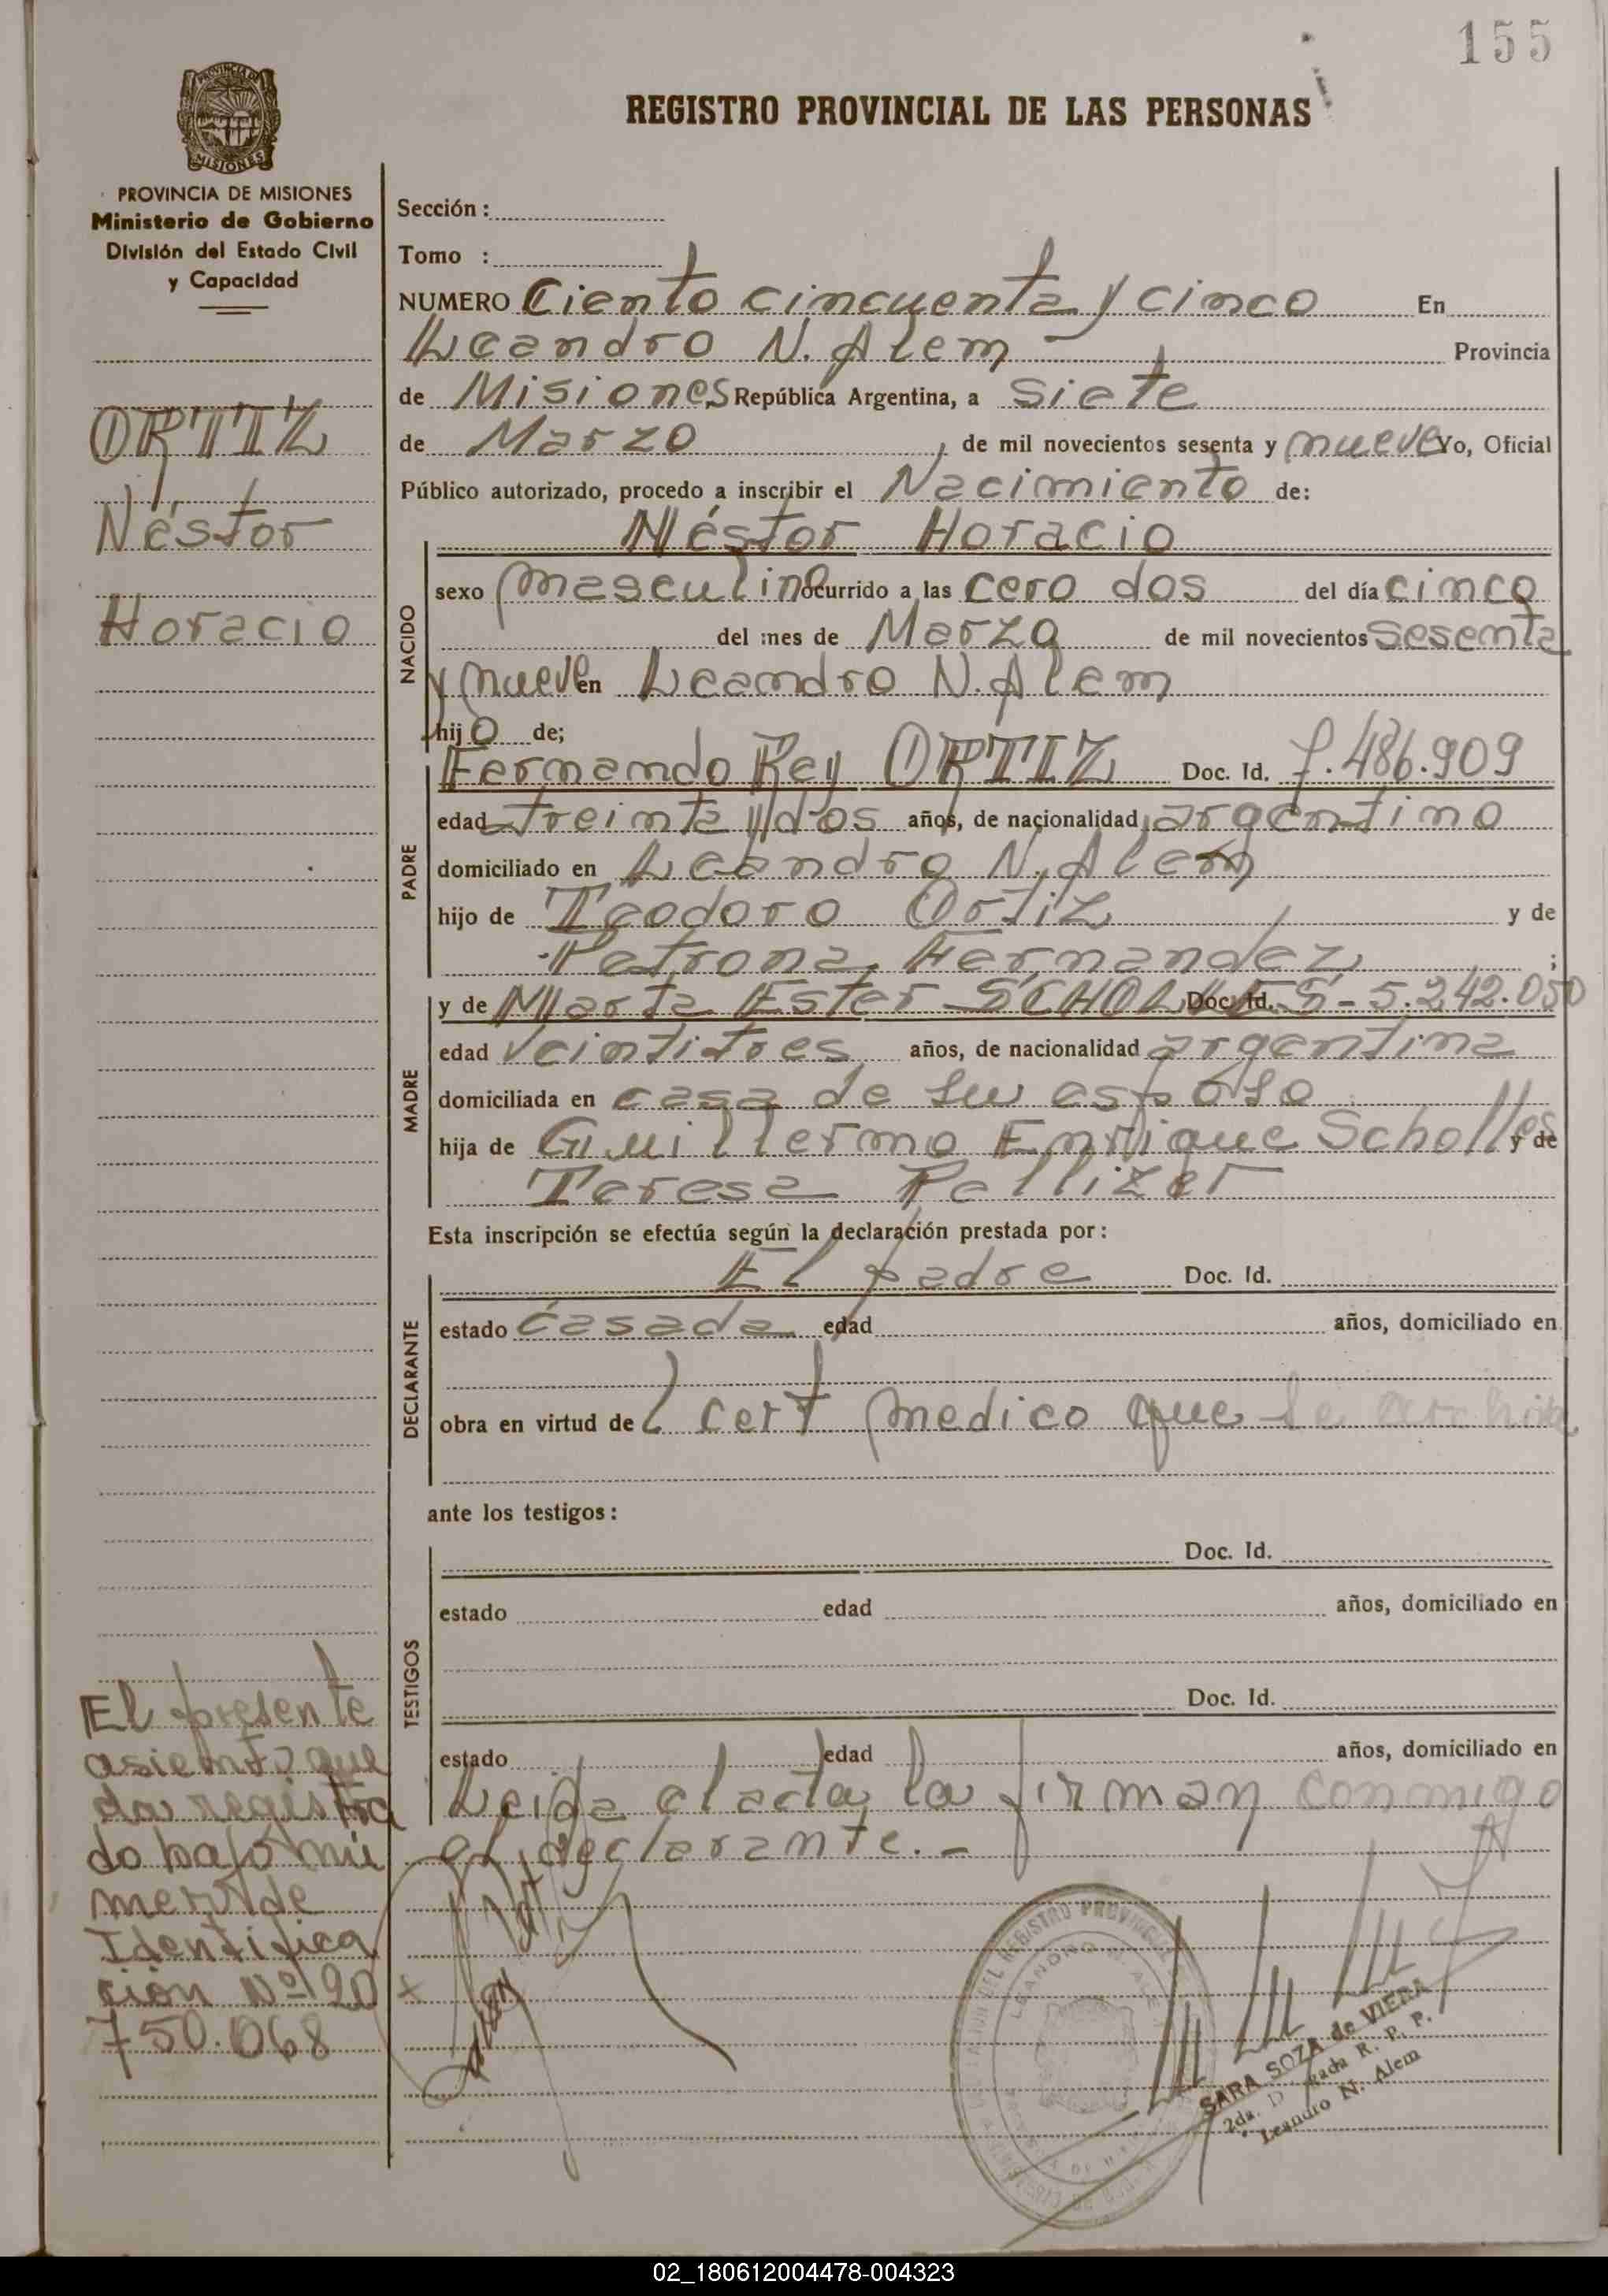 155
REGISTRO PROVINCIAL DE LAS PERSONAS
PROVINCIA DE MISIONES
Ministerio de Gobierno
División del Estado Civil
y Capacidad
ORTIZ
Néstor
Horacio
El presente
asiento que
da registra
do bajo nú
mero de
Identifica
ción Nº 20
750.068
Sección :
Tomo :
NUMERO Ciento cincuenta y cinco En
Leandro N. Alem Provincia
de Misiones República Argentina, a siete
de Marzo, de mil novecientos sesenta y nueve Yo, Oficial
Público autorizado, procedo a inscribir el Nacimiento de:
NACIDO
Néstor Horacio
sexo masculino ocurrido a las cero dos del día cinco
del mes de Marzo de mil novecientos sesenta
y nueve en Leandro N. Alem
hijo de;
PADRE
Fernando Rey ORTIZ Doc. Id. 7.486.909
edad treinta y dos años, de nacionalidad argentino
domiciliado en Leandro N. Alem
hijo de Teodoro Ortiz y de
Petrona Fernandez ;
MADRE
y de Marta Ester SCHOLLES Doc. Id. 5.242.050
edad veintitres años, de nacionalidad argentina
domiciliada en casa de su esposo
hija de Guillermo Enrique Scholles y de
Teresa Pellizer
Esta inscripción se efectúa según la declaración prestada por :
DECLARANTE
El padre Doc. Id.
estado casada edad años, domiciliado en
obra en virtud de l cert medico que se archiva
ante los testigos :
TESTIGOS
Doc. Id.
estado edad años, domiciliado en
Doc. Id.
estado edad años, domiciliado en
Leida el acta, la firman conmigo
el declarante.-
SARA SOZA de VIERA
2da. R. P. P.
Leandro N. Alem
02_180612004478-004323